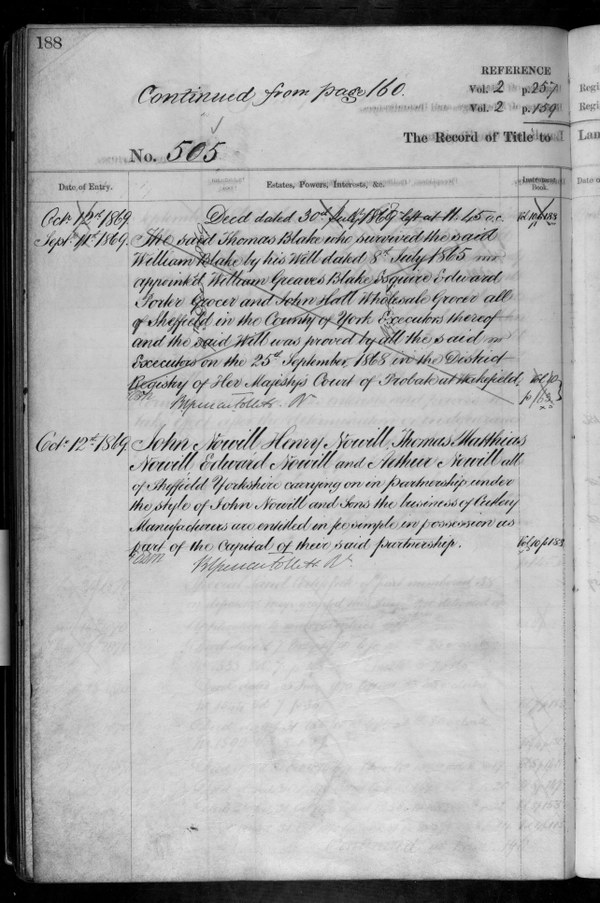 188
REFERENCE
Continued from page 160.
Vol. 2 p. 257
Vol. 2 p. 159
The Record of Title to
Lan
No. 505
Date of Entry.
Estates, Powers, Interests, &c.
Instrument Book.
Date o
Octr. 12th 1869
Deed dated 30th July 1869 left at 11.45 o.c.
Vol 10 p 188
Septr. 11th 1869.
The said Thomas Blake who survived the said
William Blake by his Will dated 8th July 1865
appointed William Greaves Blake Esquire Edward
Porter Grocer and John Hall Wholesale Grocer all
of Sheffield in the County of York Executors thereof
and the said Will was proved by all the said
Executors on the 25th September 1868 in the District
Registry of Her Majestys Court of Probate at Wakefield.
Vol 10
Octr. 12th 1869.
John Nowill Henry Nowill Thomas Matthias
Nowill Edward Nowill and Arthur Nowill all
of Sheffield Yorkshire carrying on in partnership under
the style of John Nowill and Sons the business of Cutlery
Manufacturers are entitled in fee simple in possession as
part of the Capital of their said partnership.
Vol 10 p 188